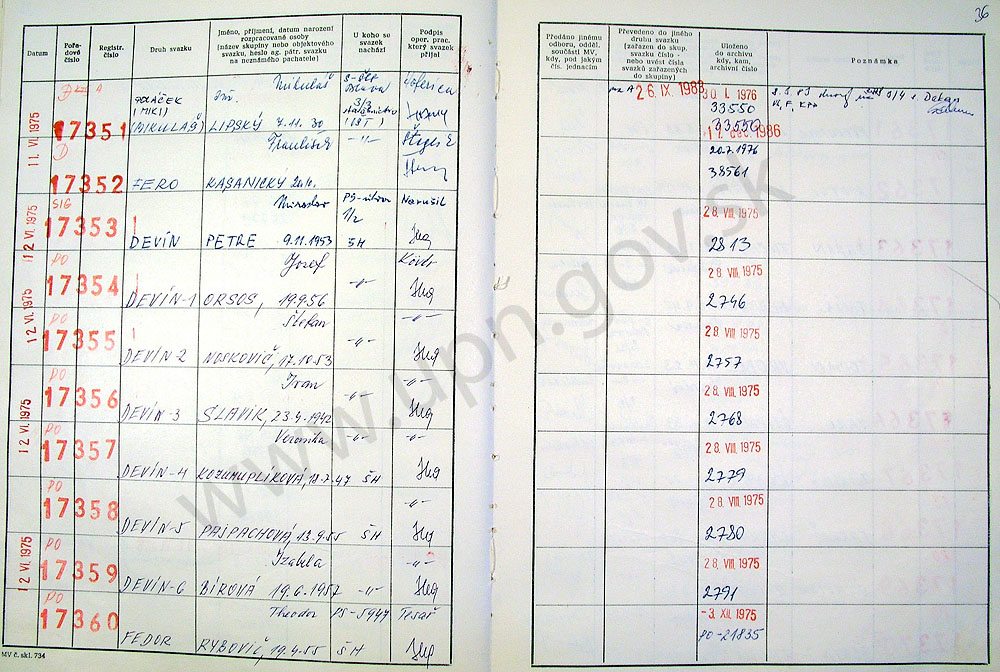 36
Datum
Pořa-
dové
číslo
Registr.
číslo
Druh svazku
Jméno, příjmení, datum narození
rozpracované osoby
(název skupiny nebo objektového
svazku, heslo ag. pátr. svazku
na neznámého pachatele)
U koho se
svazek
nachází
Podpis
oper. prac.
který svazek
přijal
Předáno jinému
odboru, odděl.
součásti MV,
kdy, pod jakým
čís. jednacím
Převedeno do jiného
druhu svazku
(zařazen do skup.
svazku číslo -
nebo uvést čísla
svazků zařazených
do skupiny)
Uloženo
do archivu
kdy, kam,
archivní číslo
Poznámka
11 VI. 1975
17351
POLÁČEK
(MIKI)
(MIKULÁŠ)
Mikuláš
LIPSKÝ 7.11.30
26 IX. 1988
30 I. 1976
33550
33550
1986
17352
FERO
František
KAŠANICKÝ
-"-
20.7.1976
38561
12 VI. 1975
SIG
17353
DEVÍN
Miroslav
PETRE 9.11.1953
1/2
ŠH
Narušil
28 VIII. 1975
2813
PO
17354
DEVÍN-1
Jozef
ORSOS, 19.9.56
-"-
28 VIII. 1975
2746
12 VI. 1975
PO
17355
DEVÍN-2
Štefan
NOSKOVIČ, 17.10.53
-"-
-"-
28 VIII. 1975
2757
PO
17356
DEVÍN-3
Ivan
SLAVIK, 23.4.1942
-"-
-"-
28 VIII. 1975
2768
12 VI. 1975
PO
17357
DEVÍN-4
Veronika
KOZUMPLÍKOVÁ, ŠH
-"-
28 VIII. 1975
2779
PO
17358
DEVÍN-5
PAJPACHOVÁ, 13.9.55 ŠH
-"-
28 VIII. 1975
2780
12 VI. 1975
PO
17359
DEVÍN-6
Izabela
BÍROVÁ 19.6.1957
-"-
-"-
28 VIII. 1975
2791
PO
17360
FEDOR
Theodor
RYBOVIČ, 19.4.55
PS-5947
ŠH
Tesař
-3. XII. 1975
PO-21835
MV č. skl. 734
www.upn.gov.sk